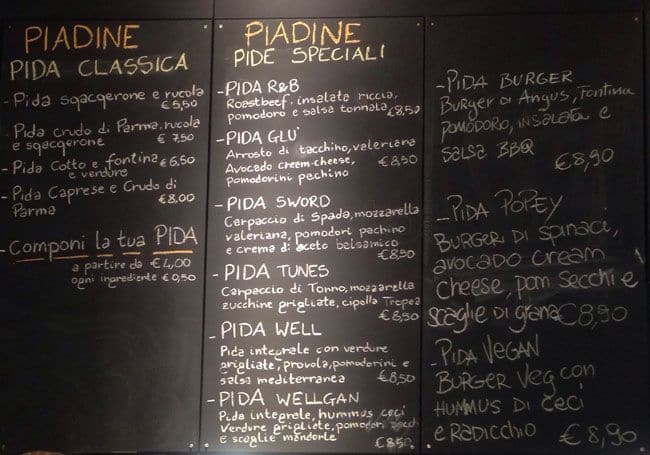 PIADINE
PIDA CLASSICA
- Pida sqacqerone e rucola
€ 5,50
- Pida crudo di Parma, rucola
e sqacqerone € 7,50
- Pida Cotto e fontina € 6.50
e verdure
- Pida Caprese e Crudo di
Parma € 8,00
- Componi la tua PIDA
a partire da € 4,00
ogni ingrediente € 0,50
PIADINE
PIDE SPECIALI
- PIDA R&B
Roastbeef, insalata riccia,
pomodoro e salsa tonnata € 8,50
- PIDA GLU'
Arrosto di tacchino, valeriana
Avocado cream cheese, € 8,50
pomodorini pachino
- PIDA SWORD
Carpaccio di Spada, mozzarella
valeriana, pomodori pachino
e crema di aceto balsamico
€ 8,50
- PIDA TUNES
Carpaccio di Tonno, mozzarella
zucchine grigliate, cipolla Tropea
€ 8,50
- PIDA WELL
Pida integrale con verdure
grigliate, provola, pomodorini e
salsa mediterranea € 8,50
- PIDA WELLGAN
Pida integrale, hummus ceci
Verdure grigliate, pomodori secchi
e scaglie mandorle € 8,50
- PIDA BURGER
Burger di Angus, Fontina
POMODORO, INSALATA e
salsa BBQ
€ 8,90
- PIDA POPEY
BURGER Di spinaci,
avocado cream
cheese, pom secchi e
scaglie di grana € 8,90
- PIDA VEGAN
BURGER Veg con
HUMMUS DI ceci
e RADICCHIO € 8,90